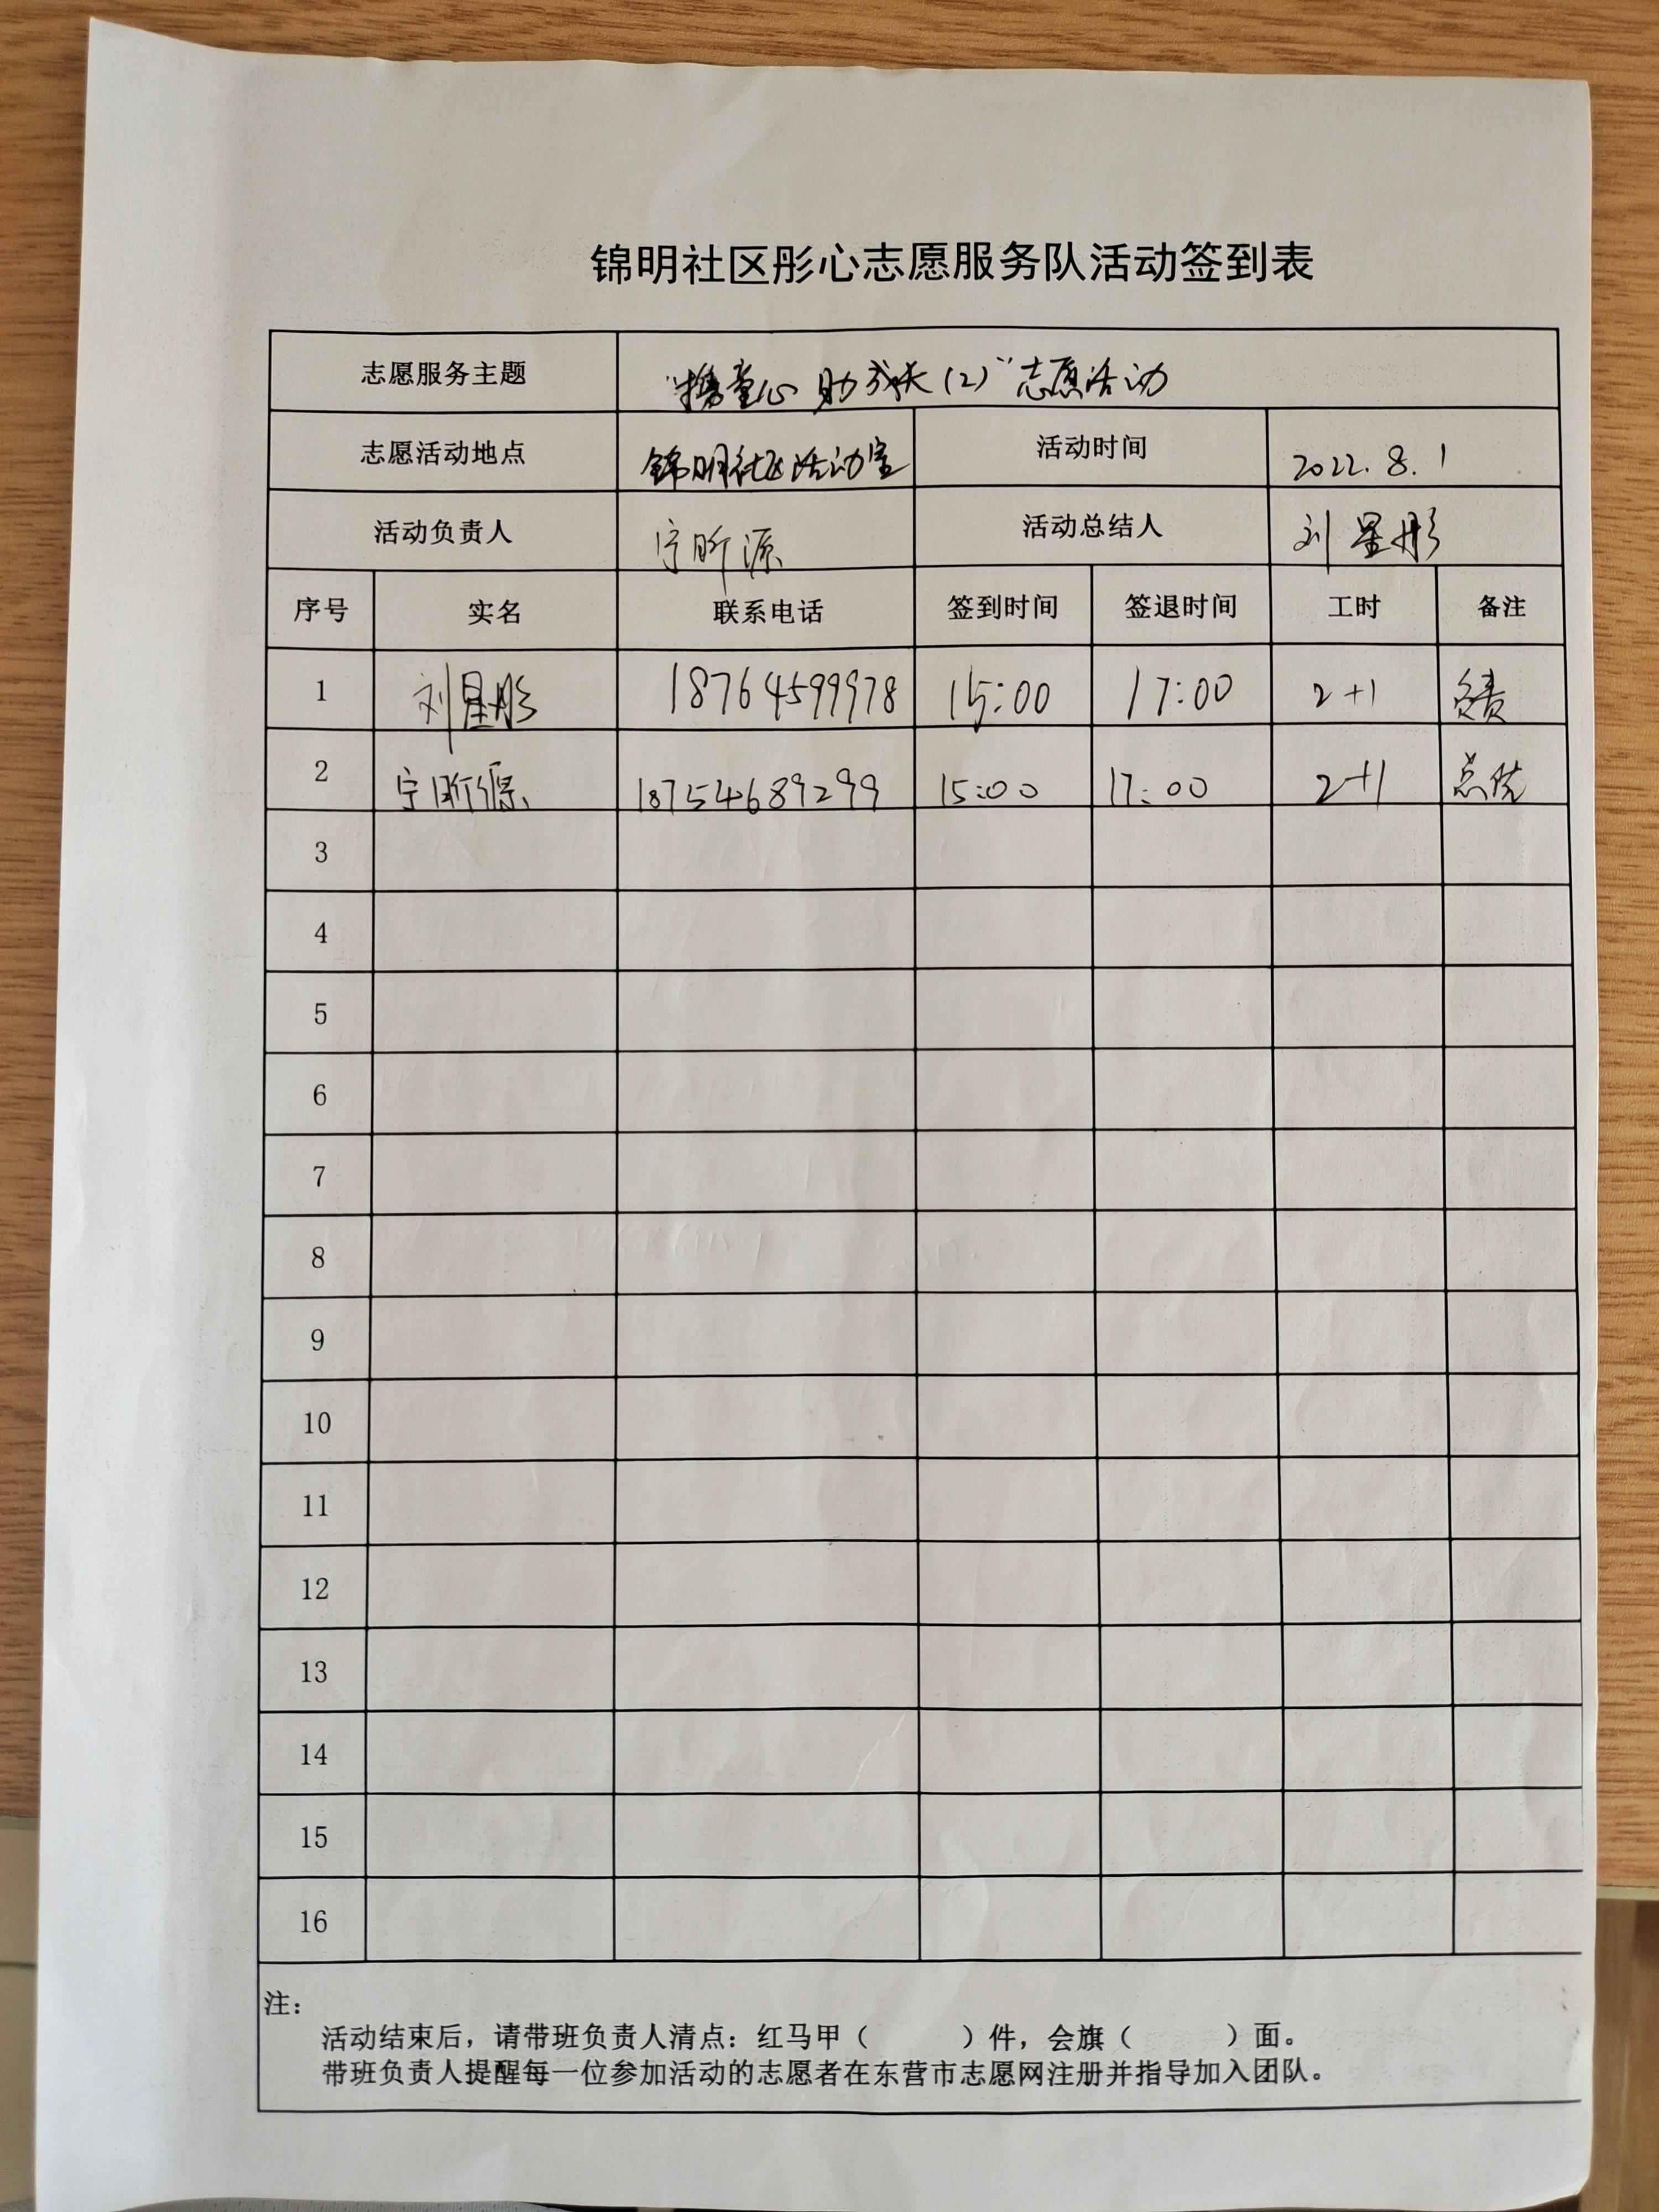 锦明社区彤心志愿服务队活动签到表
志愿服务主题 "携童心 助成长(2)"志愿活动
志愿活动地点 锦明社区活动室 活动时间 2022.8.1
活动负责人 宁昕源 活动总结人 刘星彤
序号 实名 联系电话 签到时间 签退时间 工时 备注
1 刘星彤 18764599978 15:00 17:00 2+1 负责
2 宁昕源 18754689299 15:00 17:00 2+1 总结
3
4
5
6
7
8
9
10
11
12
13
14
15
16
注:
活动结束后，请带班负责人清点：红马甲（ ）件，会旗（ ）面。
带班负责人提醒每一位参加活动的志愿者在东营市志愿网注册并指导加入团队。